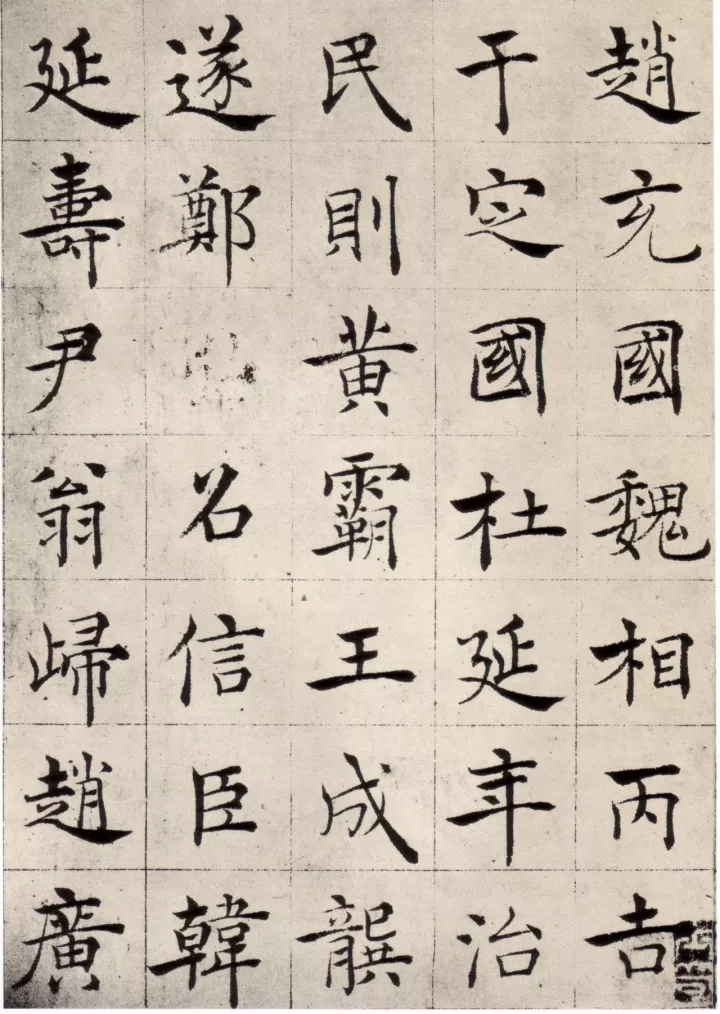 趙充國魏相丙吉
于定國杜延年治
民則黃霸王成龔
遂鄭名信臣韓
延壽尹翁歸趙廣